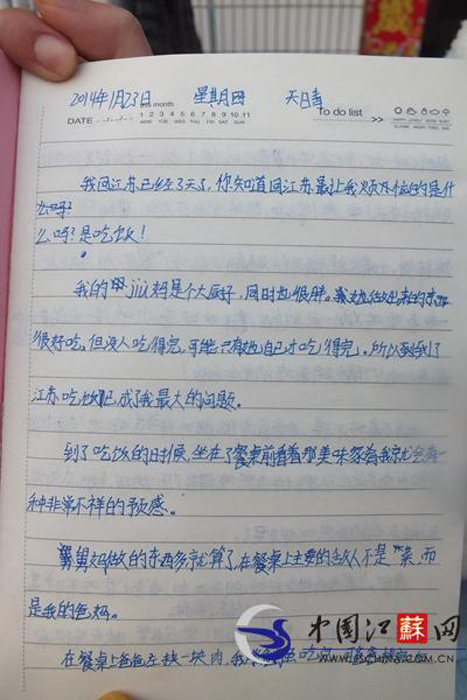 2014年1月23日 星期四 天日青
this month 1 2 3 4 5 6 7 8 9 10 11
DATE To do list >>
MON TUE WED THU FRI SAT SUN
我回江苏已经3天了,你知道回江苏最让我烦的是什
么吗?
么吗?是吃饭!
我的 jiù妈是个大厨子,同时也很胖。
很好吃,但没人吃得完,可能只有她自己才吃得完。所以到了
江苏吃饭成了我最大的问题。
到了吃饭的时候,坐在了餐桌前看着那美味家肴我就会有一
种非常不祥的预感。
舅妈做的东西多就算了,在餐桌上主要的敌人不是"菜,而
是我的爸妈。
在餐桌上爸爸左挟一块肉,我
中国江苏网